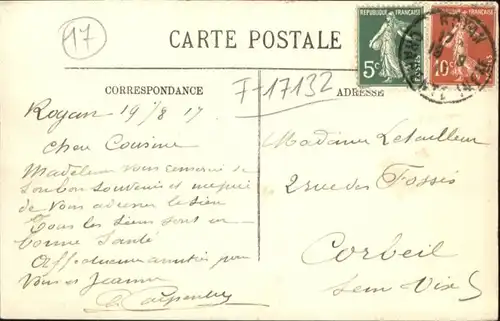 17
CARTE POSTALE
REPUBLIQUE FRANÇAISE
5c
REPUBLIQUE FRANÇAISE
10c
ROYAN
F-17132
CORRESPONDANCE
ADRESSE
Royan 19/8 17
Cher Cousine
Madeleine vous conserve un
bon souvenir et
de vous adresser le sien
Tous les siens sont en
bonne Santé
Affectueuse amitiés pour
Vous et Jeanne
Carpentier
Madame Letailleur
2 rue des Fossés
Corbeil
Seine